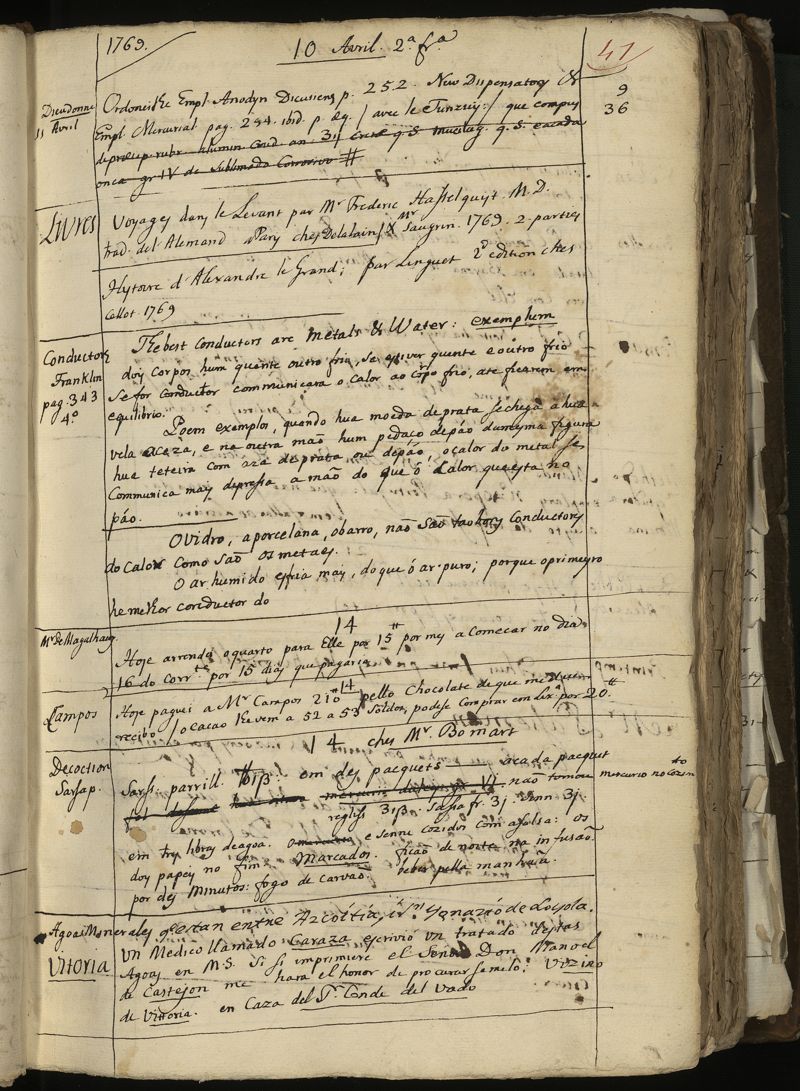 1769.
10 Avril. 2ª frª
41
Dieudonne
11 Avril
Ordonei the Empl. Anodyn p. 252. New Dispensatory &
Empl Mercurial pag. 254. ibid. p. æq. / avec le / que compus
de præcip. rubr. alumin an 3ij q.S. mucilag. q. S. e a cada
onca gr IV de Sublimado Corrosivo #
9
36
Livres
Voyages dans le Levant par Mr Frederic Hasselquist M.D.
trad. del Alemand a Pary ches Delalain / & Mr Saugrin. 1769. 2. parties
Hystoire d'Alexandre le Grand; par Linguet 2º edition ches
Cellot 1769
Conductors
Franklin
pag. 343
4º
The best Conductors are Metals & Water: exemplum
doys Corpos hum quente outro frio, Se estiver quente e outro frio
Se for Conductor communicara o Calor ao corpo frio, ate ficarem em
equilibrio.
Poem exemplos, quando hua moeda de prata se chega a hua
vela aceza, e na outra mão hum pedaço de páo da mesma figura
hua teteira com aza de prata, ou de páo, o calor do metal se
Communica mays depressa a mão do que o Calor que esta no
páo.
O vidro, a porcelana, o barro, não São tão bons Conductors
do Calor Como São os metaes.
O ar humido esfria mays, do que ó ar puro; porque o primeyro
he melhor conductor do
14
Mr de Magalhaens
Hoje arrendo o quarto para Elle por 15 # por mes a Comecar no dia
16 do Corrte por 15 dias que pagaria
14
Campos
Hoje paguei a Mr Campos 210 # pello Chocolate de que me
recibo / o Cacao lhe vem a 52 a 53 Soldos, podese Comprar em Lxª por 20. #
14 ches Mr. Bomart
Decoction
Sarsap.
Sarsi parrill. ℔iβ. em des pacquets a cada pacquet
VI não tomou mercurio no cozimto
reglis 3iβ. Sassafr. 3j. Senn 3j.
em tres libras de agoa. e Senne cozidos com a Salsa: os
doys papeys no fim Marcados. ficão de noite na infusão
por des Minutos: fogo de Carvão. beber pella manhuã.
Agoas Minerales
Vitoria
q estan entre Azcoitia, i Sn Ygnazio de Loyola.
Un Medico llamado Caraza escrivió Un tratado destas
Agoas en M.S. Si Si imprimiere el Senor Don Manoel
de Castejon me hara el honor de procurar se melo; Vizino
de Vittoria. en Caza del Sr Conde del Vado